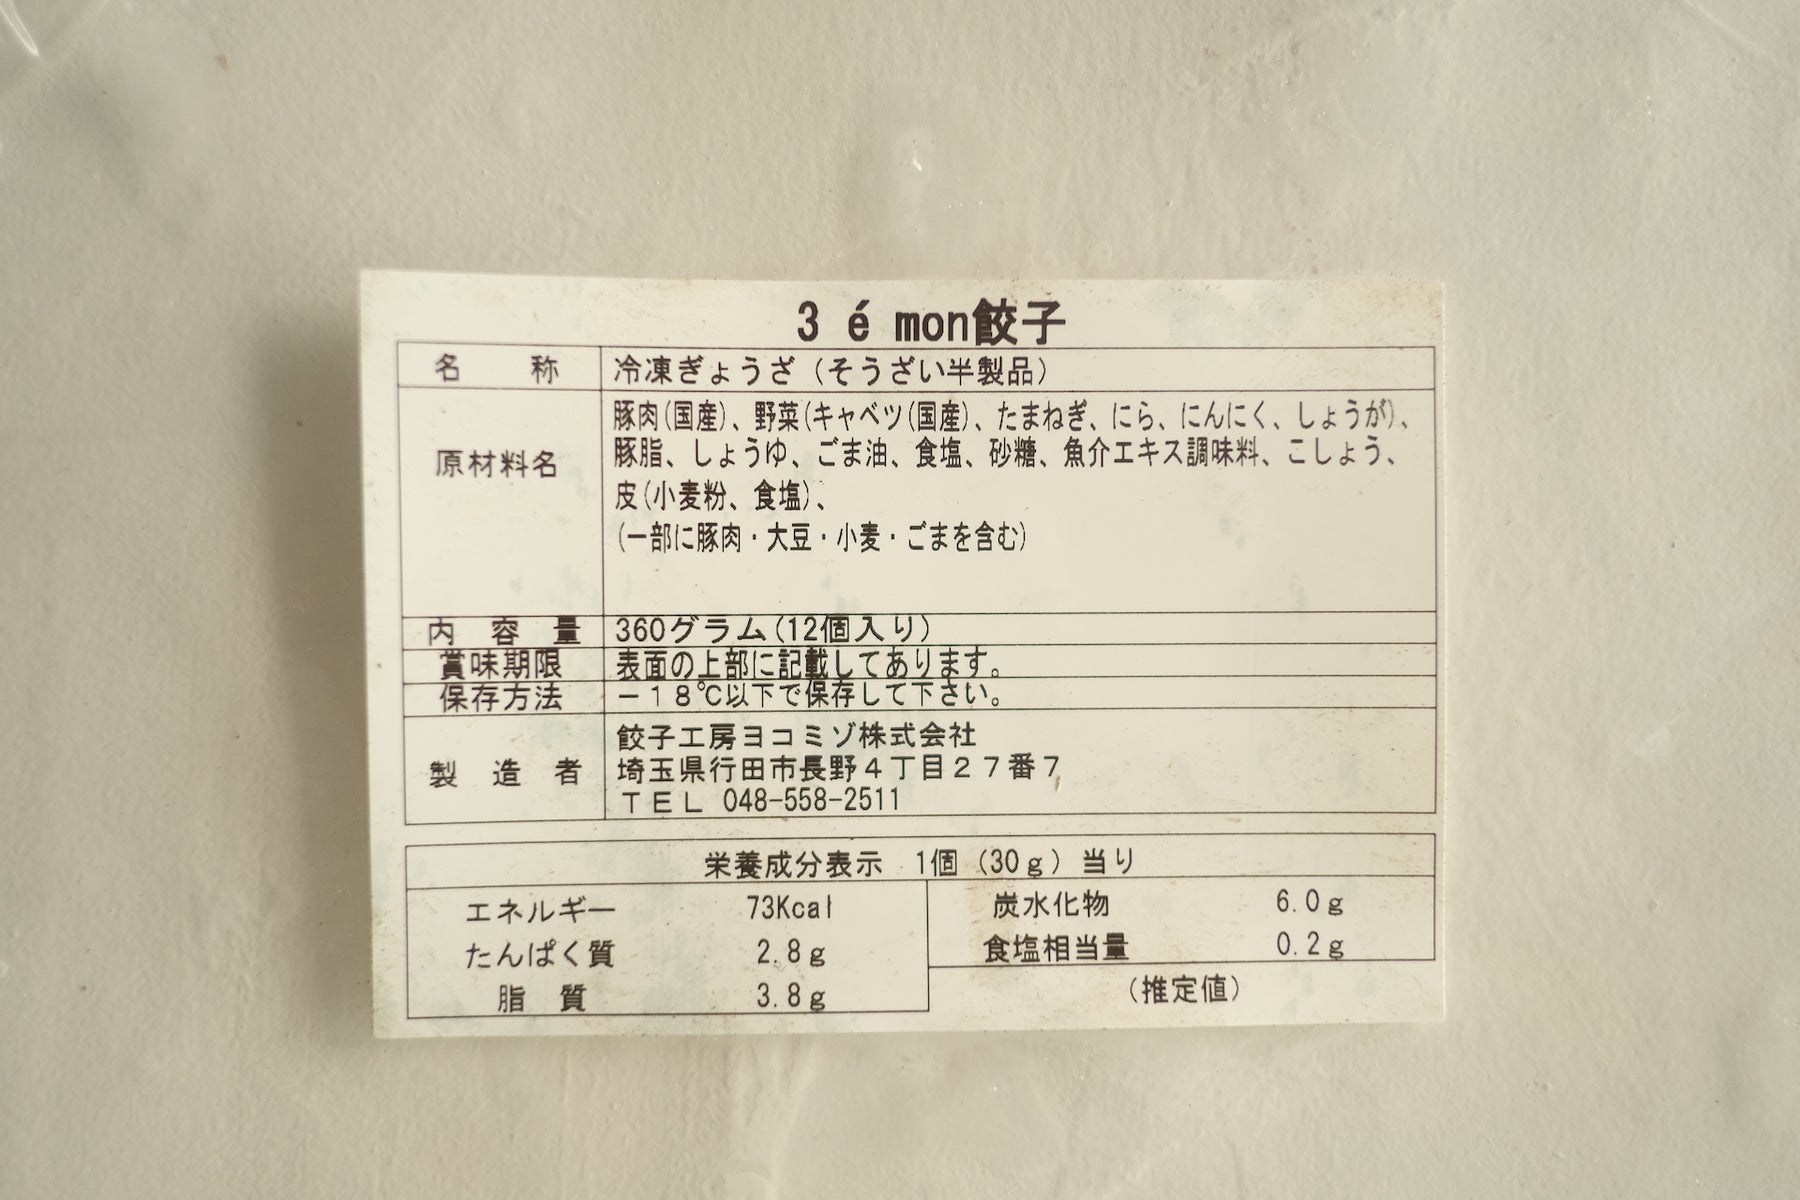 3 é mon餃子
名 称 冷凍ぎょうざ（そうざい半製品）
原材料名 豚肉(国産)、野菜(キャベツ(国産)、たまねぎ、にら、にんにく、しょうが)、
豚脂、しょうゆ、ごま油、食塩、砂糖、魚介エキス調味料、こしょう、
皮(小麦粉、食塩)、
(一部に豚肉・大豆・小麦・ごまを含む)
内 容 量 360グラム(12個入り)
賞味期限 表面の上部に記載してあります。
保存方法 －１８℃以下で保存して下さい。
製 造 者 餃子工房ヨコミゾ株式会社
埼玉県行田市長野４丁目２７番７
ＴＥＬ 048-558-2511
栄養成分表示 1個（30ｇ）当り
エネルギー 73Kcal
たんぱく質 2.8ｇ
脂 質 3.8ｇ
炭水化物 6.0ｇ
食塩相当量 0.2ｇ
（推定値）